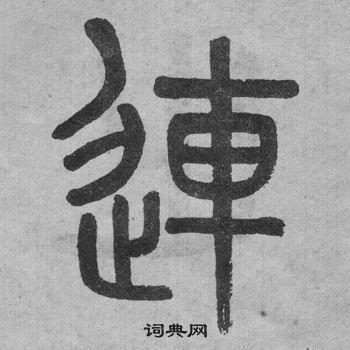 連
词典网